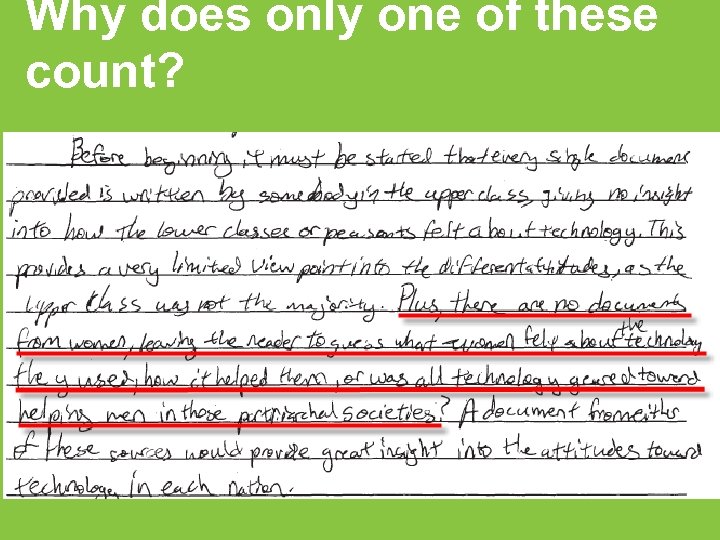 Why does only one of these
count?
Before beginning, it must be started that every single document
provided is written by somebody in the upper class, giving no insight
into how the lower classes or peasants felt about technology. This
provides a very limited view point into the different attitudes, as the
upper class was not the majority. Plus, there are no documents
from women, leaving the reader to guess what women felt about the technology
they used, how it helped them, or was all technology geared toward
helping men in these patriarchal societies? A document from either
of these sources would provide great insight into the attitudes toward
technology in each nation.